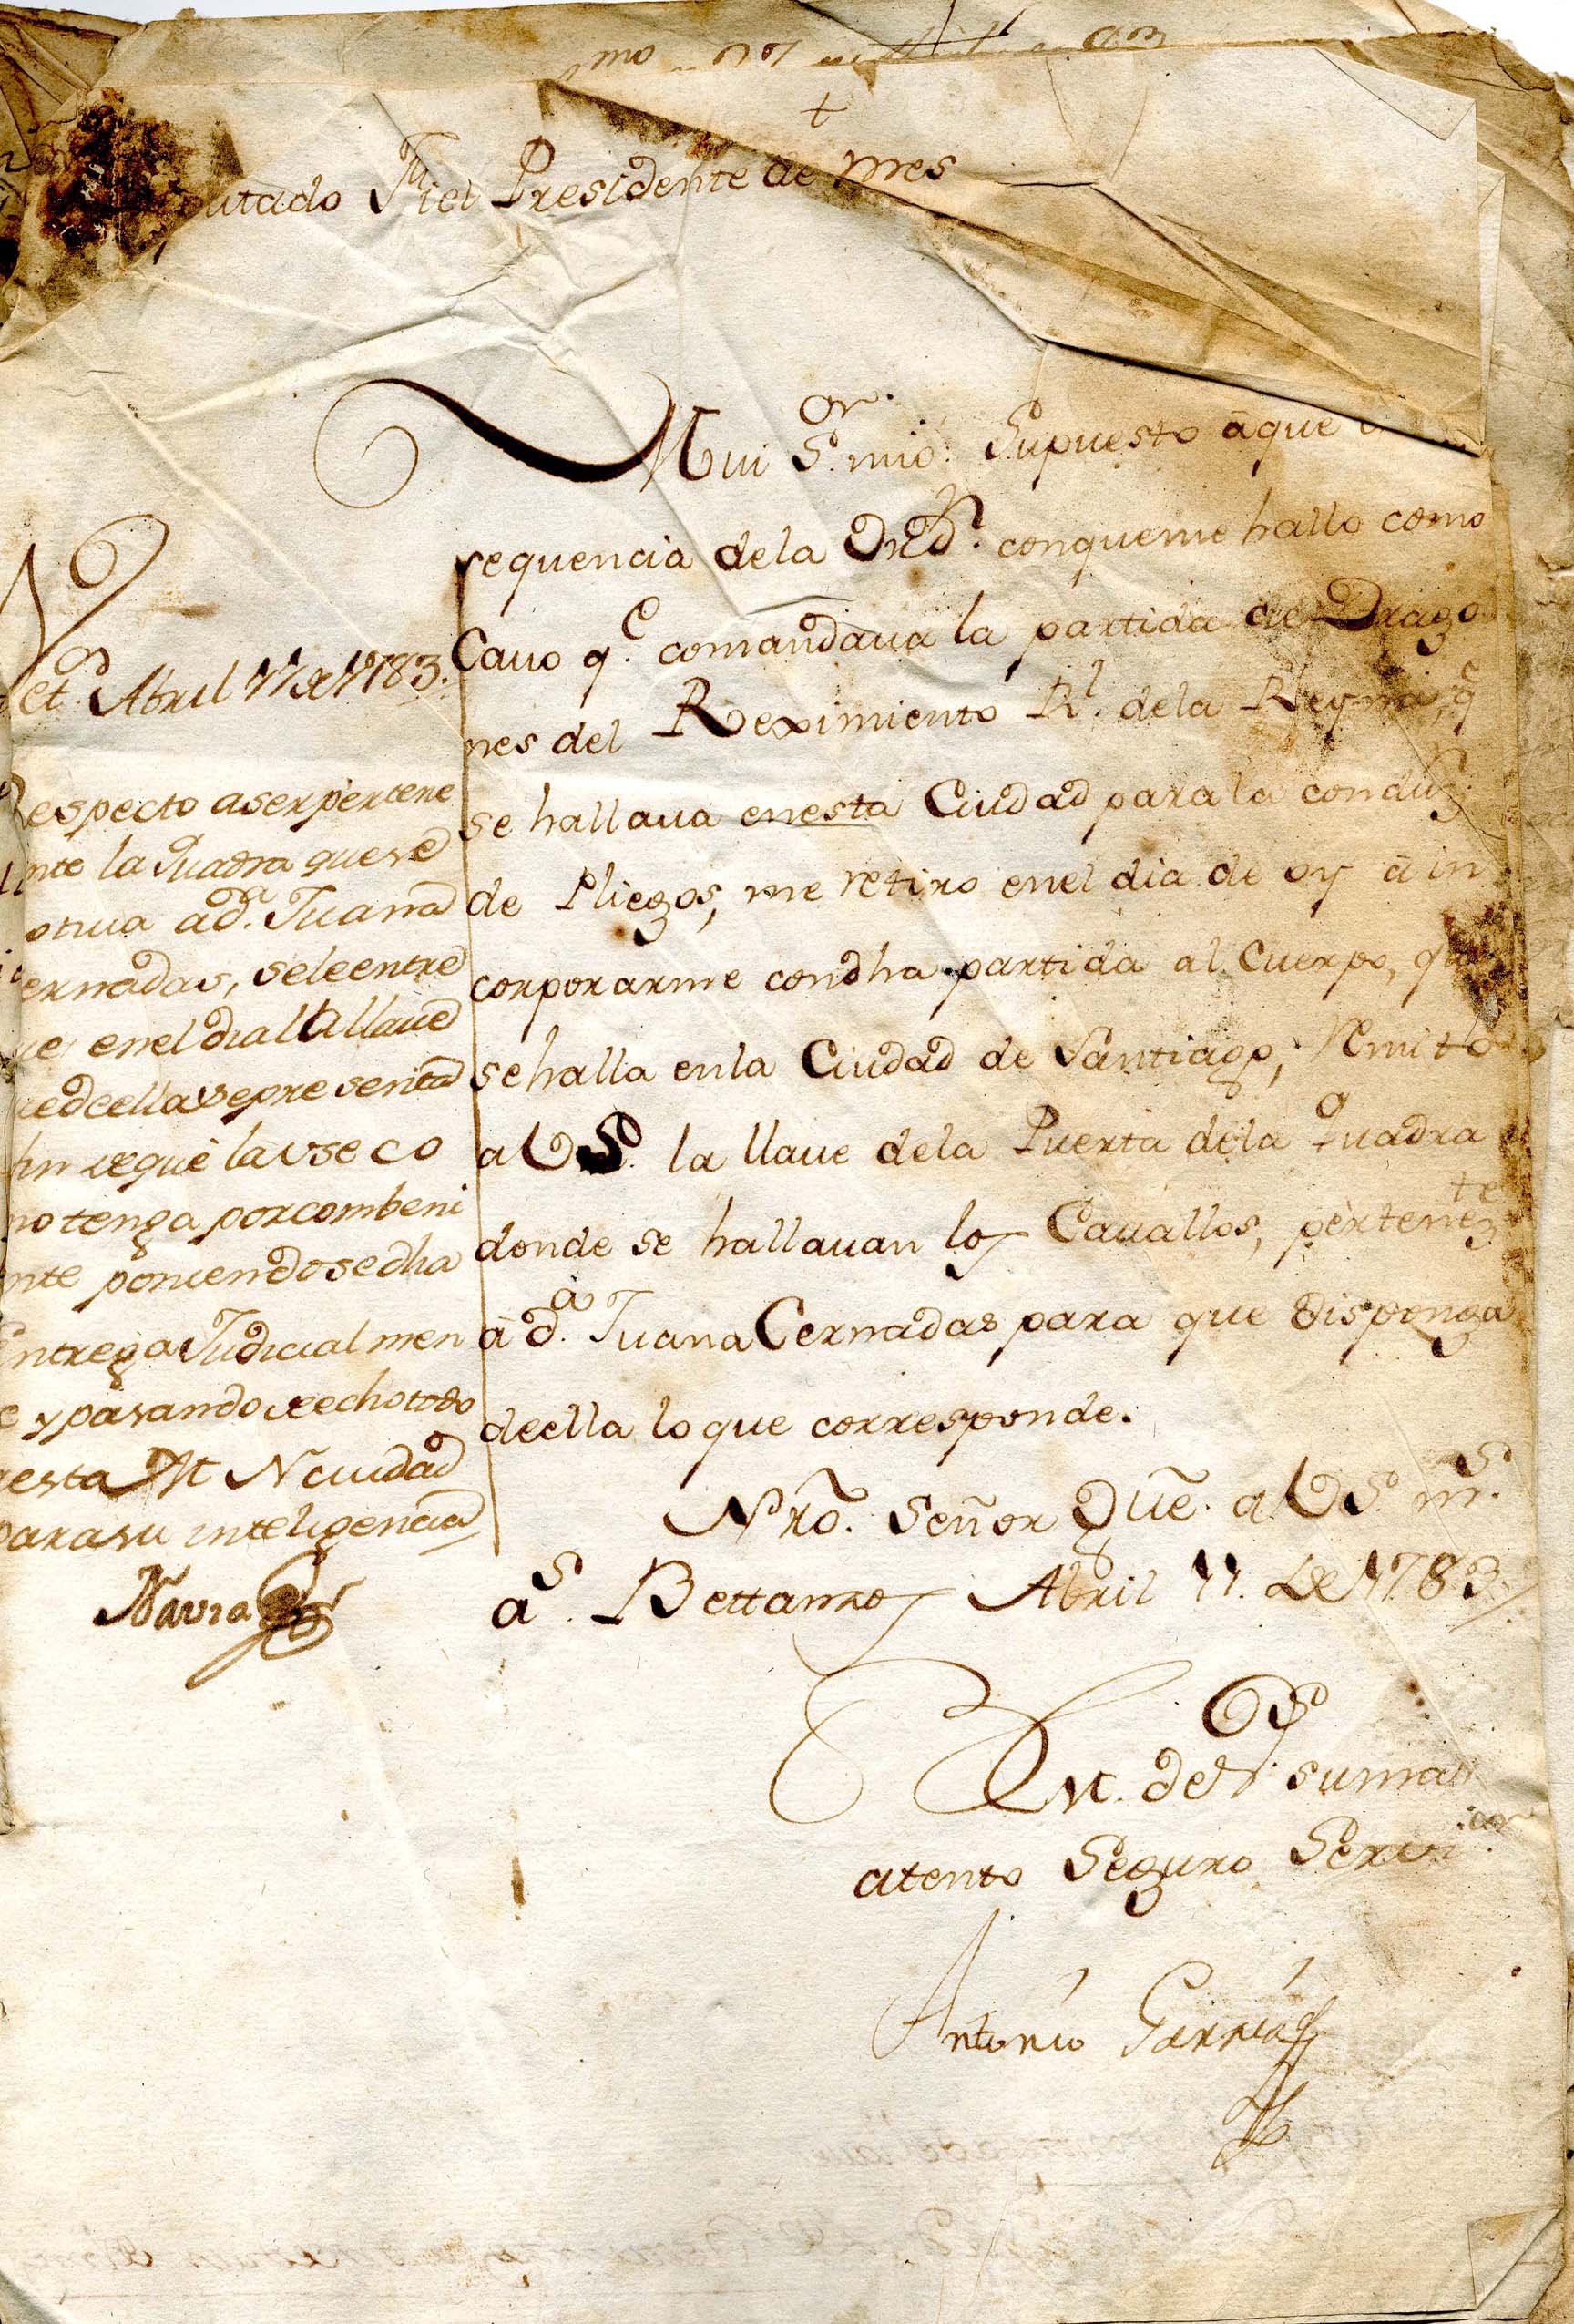 +
putado Fiel Presidente de mes
Mui S.or mio: Supuesto aque
sequencia dela Orn. conqueme hallo como
Cavo q.e comandaua la partida de Drago
nes del Reximiento R.l dela Reyna, q̃
se hallaua enesta Ciudad parala conduz.n
de Pliegos, me retiro enel dia de oy á in
corporarme condha partida al Cuerpo, que
sehalla enla Ciudad de Santiago, Remito
a VS. la llaue dela Puerta dela Quadra
donde se hallauan los Cauallos, pertenez.te
à d.a Juana Cernadas para que disponga
deella loque corresponde.
Nrõ. Señor Gũe. a VS. m.s
a.s Bettanzos Abril 11. de 1783.
VS
atento Seguro Servi
Antonio Garcia
et.o Abril 11 de 1783.
Respecto aserpertene
nte la Quadra quese
otiua ad.a Juana
ernadas, seleentre
ue enel dia la llaue
uedeella se presenta
fin deque la use co
mo tenga porcombeni
nte poniendosedha
Entrega Judicialmen
e y pasando deechotodo
esta M N Ciudad
para su inteligencia